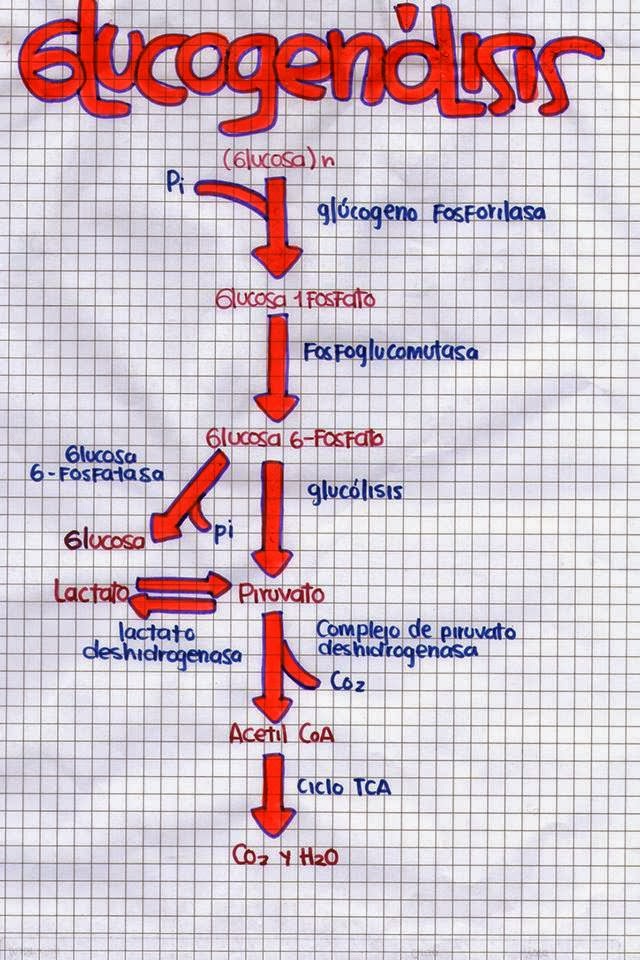 Glucogenólisis
(Glucosa)n
Pi
glúcogeno Fosforilasa
Glucosa 1 Fosfato
Fosfoglucomutasa
Glucosa 6-Fosfato
Glucosa
6-Fosfatasa
glucólisis
pi
Glucosa
Lactato
Piruvato
lactato
deshidrogenasa
Complejo de piruvato
deshidrogenasa
Co2
Acetil CoA
Ciclo TCA
Co2 y H2O